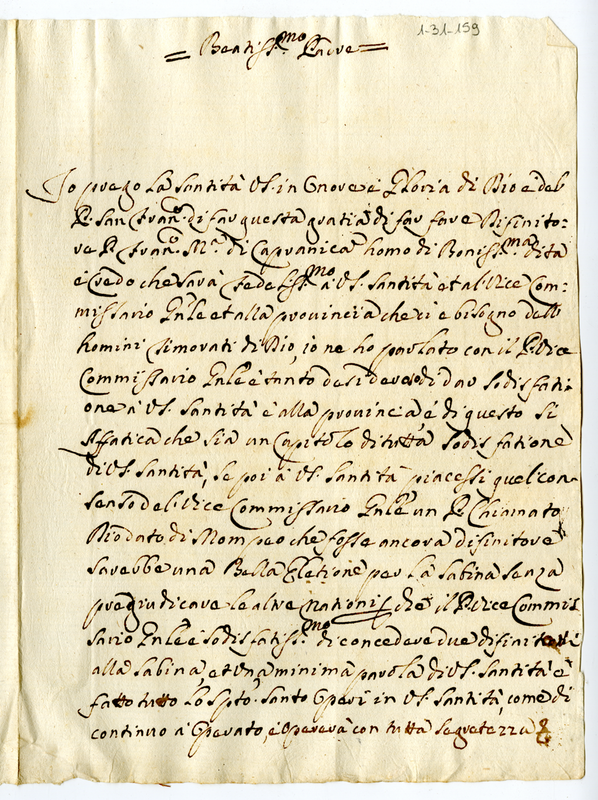 1-31-159
= Beatiss.mo Padre =
Io prego La Santità VS. in Onore è Gloria di Dio è del
P. San Fran.o di far questa gratia di far fare Difinito:
re P. Fran.o M.a di Capranica homo di Boniss.ma Vita
è Credo che sarà Fedeliss.mo à VS. Santità et al Vice Com:
missario Gnle et alla provincia che vi è bisogno delli
homini timorati di Dio, io ne ho parlato con il P. Vice
Commissario Gnle è tanto desideroso di dar Sodisfati:
one à VS. Santità è alla provincia, è di questo si
Affatica che sia un Capitolo di tutta Sodisfatione
di VS. Santità, Se poi à VS. Santità piacessi quel con
senso del Vice Commissario Gnle un P. Chiamato
Diodato di Mompeo che fosse ancora difinitore
sarebbe una Bella Eletione per La Sabina senza
pregiudicare le altre nationi che il P. Vice Commis
sario Gnle è Sodisfatiss.mo di concedere due difinitori
alla Sabina, et una minima parola di VS. Santità è
fatto tutto Lo Spto. Santo Operi in VS. Santità, come di
continuo à Operato, è Operarà con tutta Segretezza &